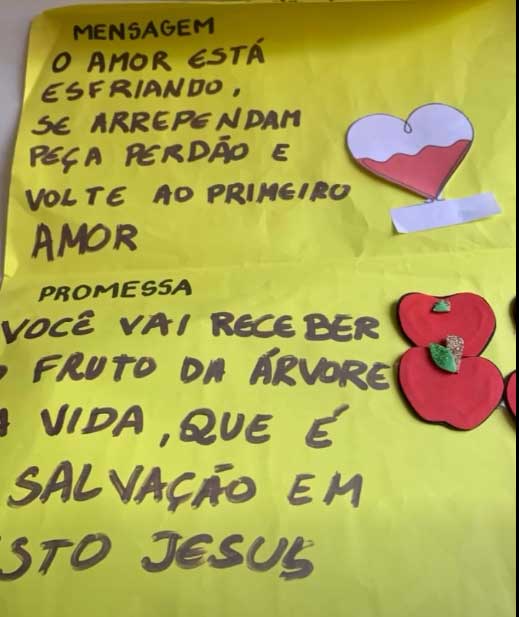 MENSAGEM
O AMOR ESTÁ
ESFRIANDO,
SE ARREPENDAM
PEÇA PERDÃO E
VOLTE AO PRIMEIRO
AMOR
PROMESSA
VOCÊ VAI RECEBER
O FRUTO DA ÁRVORE
A VIDA, QUE É
SALVAÇÃO EM
STO JESUS